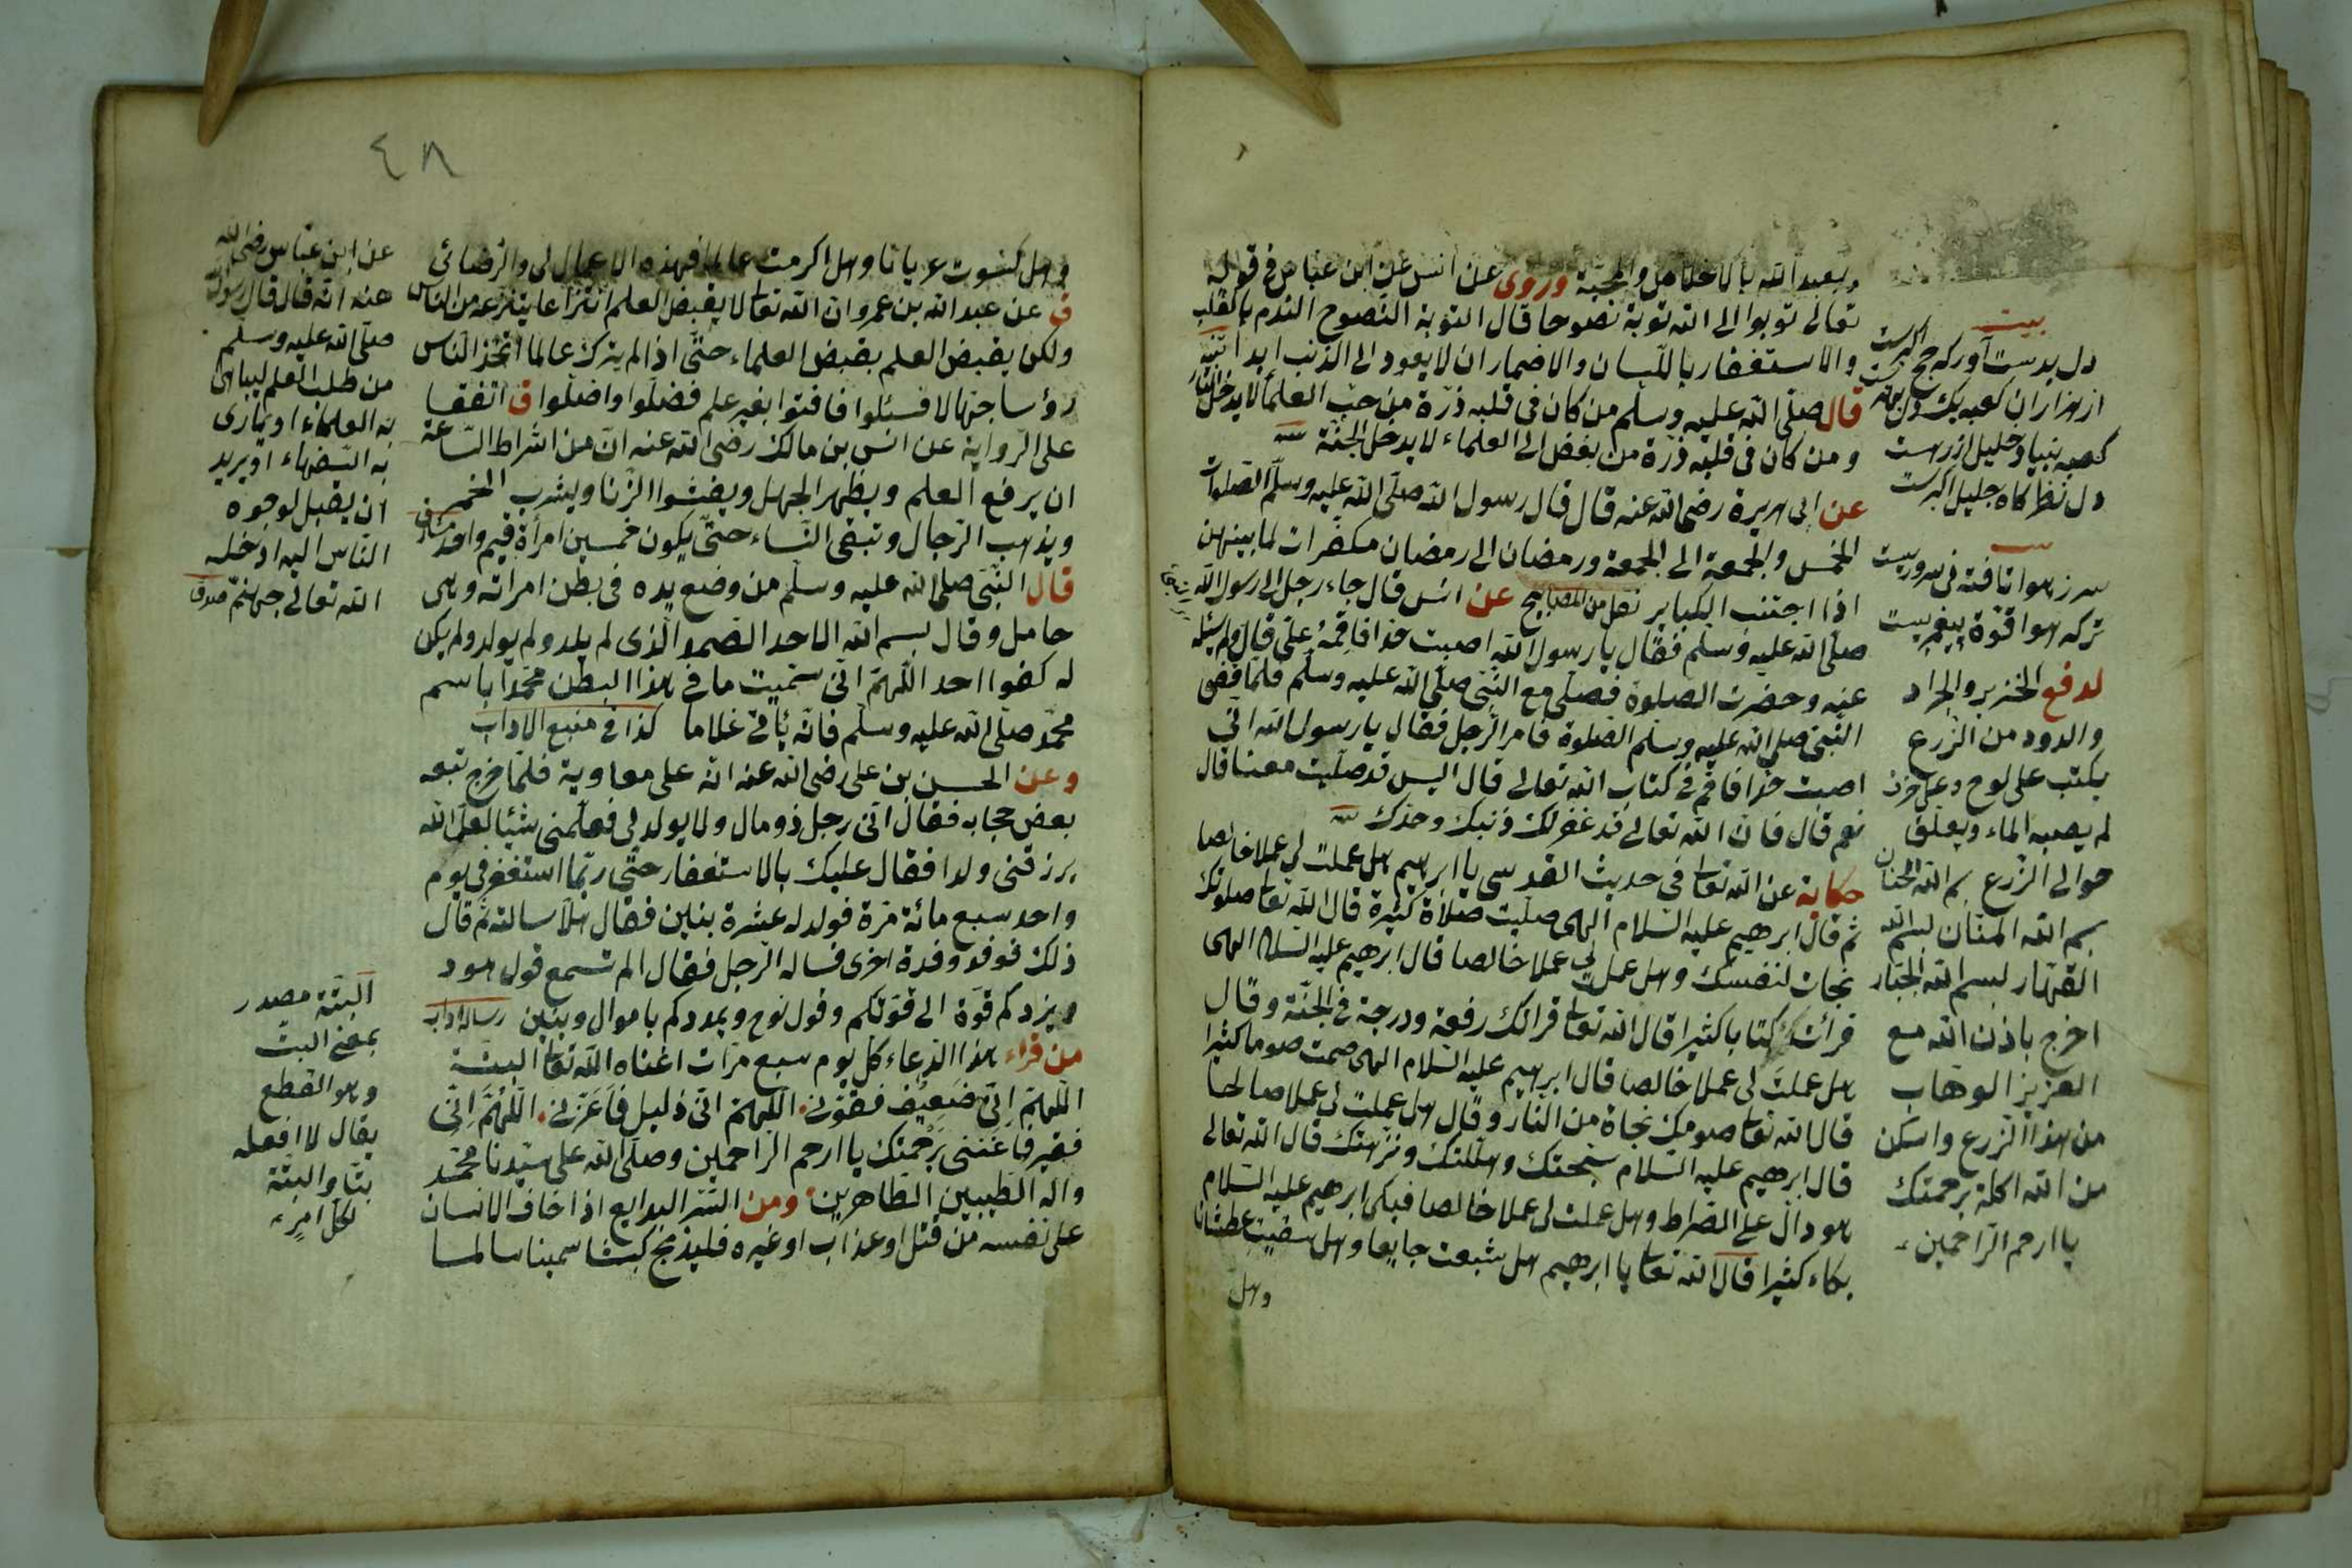 ويعبد الله بالاخلاص والمحبة وروى عن انس عن ابن عباس في قوله
تعالى توبوا الى الله توبة نصوحا قال التوبة النصوح الندم بالقلب
والاستغفار باللسان والاضمار ان لا يعود الى الذنب ابدا
قال صلى الله عليه وسلم من كان في قلبه ذرة من حب العلماء لا يدخل النار
ومن كان في قلبه ذرة من بغض الى العلماء لا يدخل الجنة
عن ابى هريرة رضى الله عنه قال قال رسول الله صلى الله عليه وسلم الصلوات
الخمس والجمعة الى الجمعة ورمضان الى رمضان مكفرات لما بينهن
اذا اجتنب الكباير نقل من المصابيح عن انس قال جاء رجل الى رسول الله
صلى الله عليه وسلم فقال يا رسول الله اصبت حدا فاقمه على قال ولم يسئله
عنه وحضرت الصلوة فصلى مع النبى صلى الله عليه وسلم فلما قضى
النبى صلى الله عليه وسلم الصلوة قام الرجل فقال يا رسول الله انى
اصبت حدا فاقم في كتاب الله تعالى قال اليس قد صليت معنا قال
نعم قال فان الله تعالى قد غفر لك ذنبك وحدك
حكاية عن الله تعا في حديث القدسى يا ابرهيم هل عملت لى عملا خالصا
ثم قال ابرهيم عليه السلام الهى صليت صلاة كثيرة قال الله تعا صلوتك
نجات لنفسك وهل عملت لى عملا خالصا قال ابرهيم عليه السلام الهى
قرأتك كتابا كثيرا قال الله تعا قرأتك رفعة ودرجة في الجنة وقال
هل عملت لى عملا خالصا قال ابرهيم عليه السلام الهى صمت صوما كثيرا
قال الله تعا صومك نجاة من النار وقال هل عملت لى عملا صالحا
قال ابرهيم عليه السلام سبحتك وهللتك ونزهتك قال الله تعالى
هو دال على الصراط وهل عملت لى عملا خالصا فبكى ابرهيم عليه السلام
بكاء كثيرا قال الله تعا يا ابرهيم هل شبعت جايعا وهل سقيت عطشانا
وهل
بيت
دل بدست آور كه حج اكبرست
از هزاران كعبه يك دل بهترست
كعبه بنياد خليل ازرست
دل نظركاه جليل اكبرست
سرز هوا تافته فى سروريست
ترك هوا قوة پيغمبريست
لدفع الخنزير والجراد
والدود من الزرع
يكتب على لوح وعلى خزف
لم يصبه الماء ويعلق
حوالى الزرع بسم الله الحنان
بسم الله المنان بسم الله
القهار بسم الله الجبار
اخرج باذن الله مع
العزيز الوهاب
من هذا الزرع واسكن
من الله اكلة برحمتك
يا ارحم الراحمين
٤٨
وهل كسوت عريانا وهل اكرمت عالما فهذه الاعمال لى والرضائى
ق عن عبد الله بن عمرو ان الله تعا لا يقبض العلم انتزاعا ينتزعه من الناس
ولكن يقبض العلم بقبض العلماء حتى اذا لم يترك عالما اتخذ الناس
رؤسا جهالا فسئلوا فافتوا بغير علم فضلوا واضلوا ق اتفقا
على الرواية عن انس بن مالك رضى الله عنه ان من اشراط الساعة
ان يرفع العلم ويظهر الجهل ويفشوا الزنا ويشرب الخمر
ويذهب الرجال وتبقى النساء حتى يكون خمسين امرأة قيم واحد
قال النبى صلى الله عليه وسلم من وضع يده في بطن امراته وهى
حامل وقال بسم الله الاحد الصمد الذى لم يلد ولم يولد ولم يكن
له كفوا احد اللهم انى سميت ما في هذا البطن محمدا باسم
محمد صلى الله عليه وسلم فانه يأتى غلاما كذا في منبع الاداب
وعن الحسن بن على رضى الله عنه انه على معاوية فلما خرج تبعه
بعض حجابه فقال انى رجل ذو مال ولا يولد لى فعلمنى شيئا لعل الله
يرزقنى ولدا فقال عليك بالاستغفار حتى ربما استغفر في يوم
واحد سبع مائة مرة فولد له عشرة بنين فقال هلا سالته ثم قال
ذلك فوفد وفدة اخرى فساله الرجل فقال الم تسمع قول هود
ويزدكم قوة الى قوتكم وقول نوح ويمددكم باموال وبنين رساله اداب
من قراء هذا الدعاء كل يوم سبع مرات اغناه الله تعا البتة
اللهم انى ضعيف فقونى اللهم انى ذليل فاعزنى اللهم انى
فقير فاغننى برحمتك يا ارحم الراحمين وصلى الله على سيدنا محمد
واله الطيبين الطاهرين ومن السر البدايع اذا خاف الانسان
على نفسه من قتل او عذاب او غيره فليذبح كبشا سمينا سالما
عن ابن عباس رضى الله
عنه انه قال قال رسول الله
صلى الله عليه وسلم
من طلب العلم ليباهى
به العلماء او يمارى
به السفهاء او يريد
ان يقبل لوجوه
الناس اليه ادخله
الله تعالى جهنم صدق
البتة مصدر
بمعنى البت
وهو القطع
يقال لا افعله
بتا والبتة
لكل امر